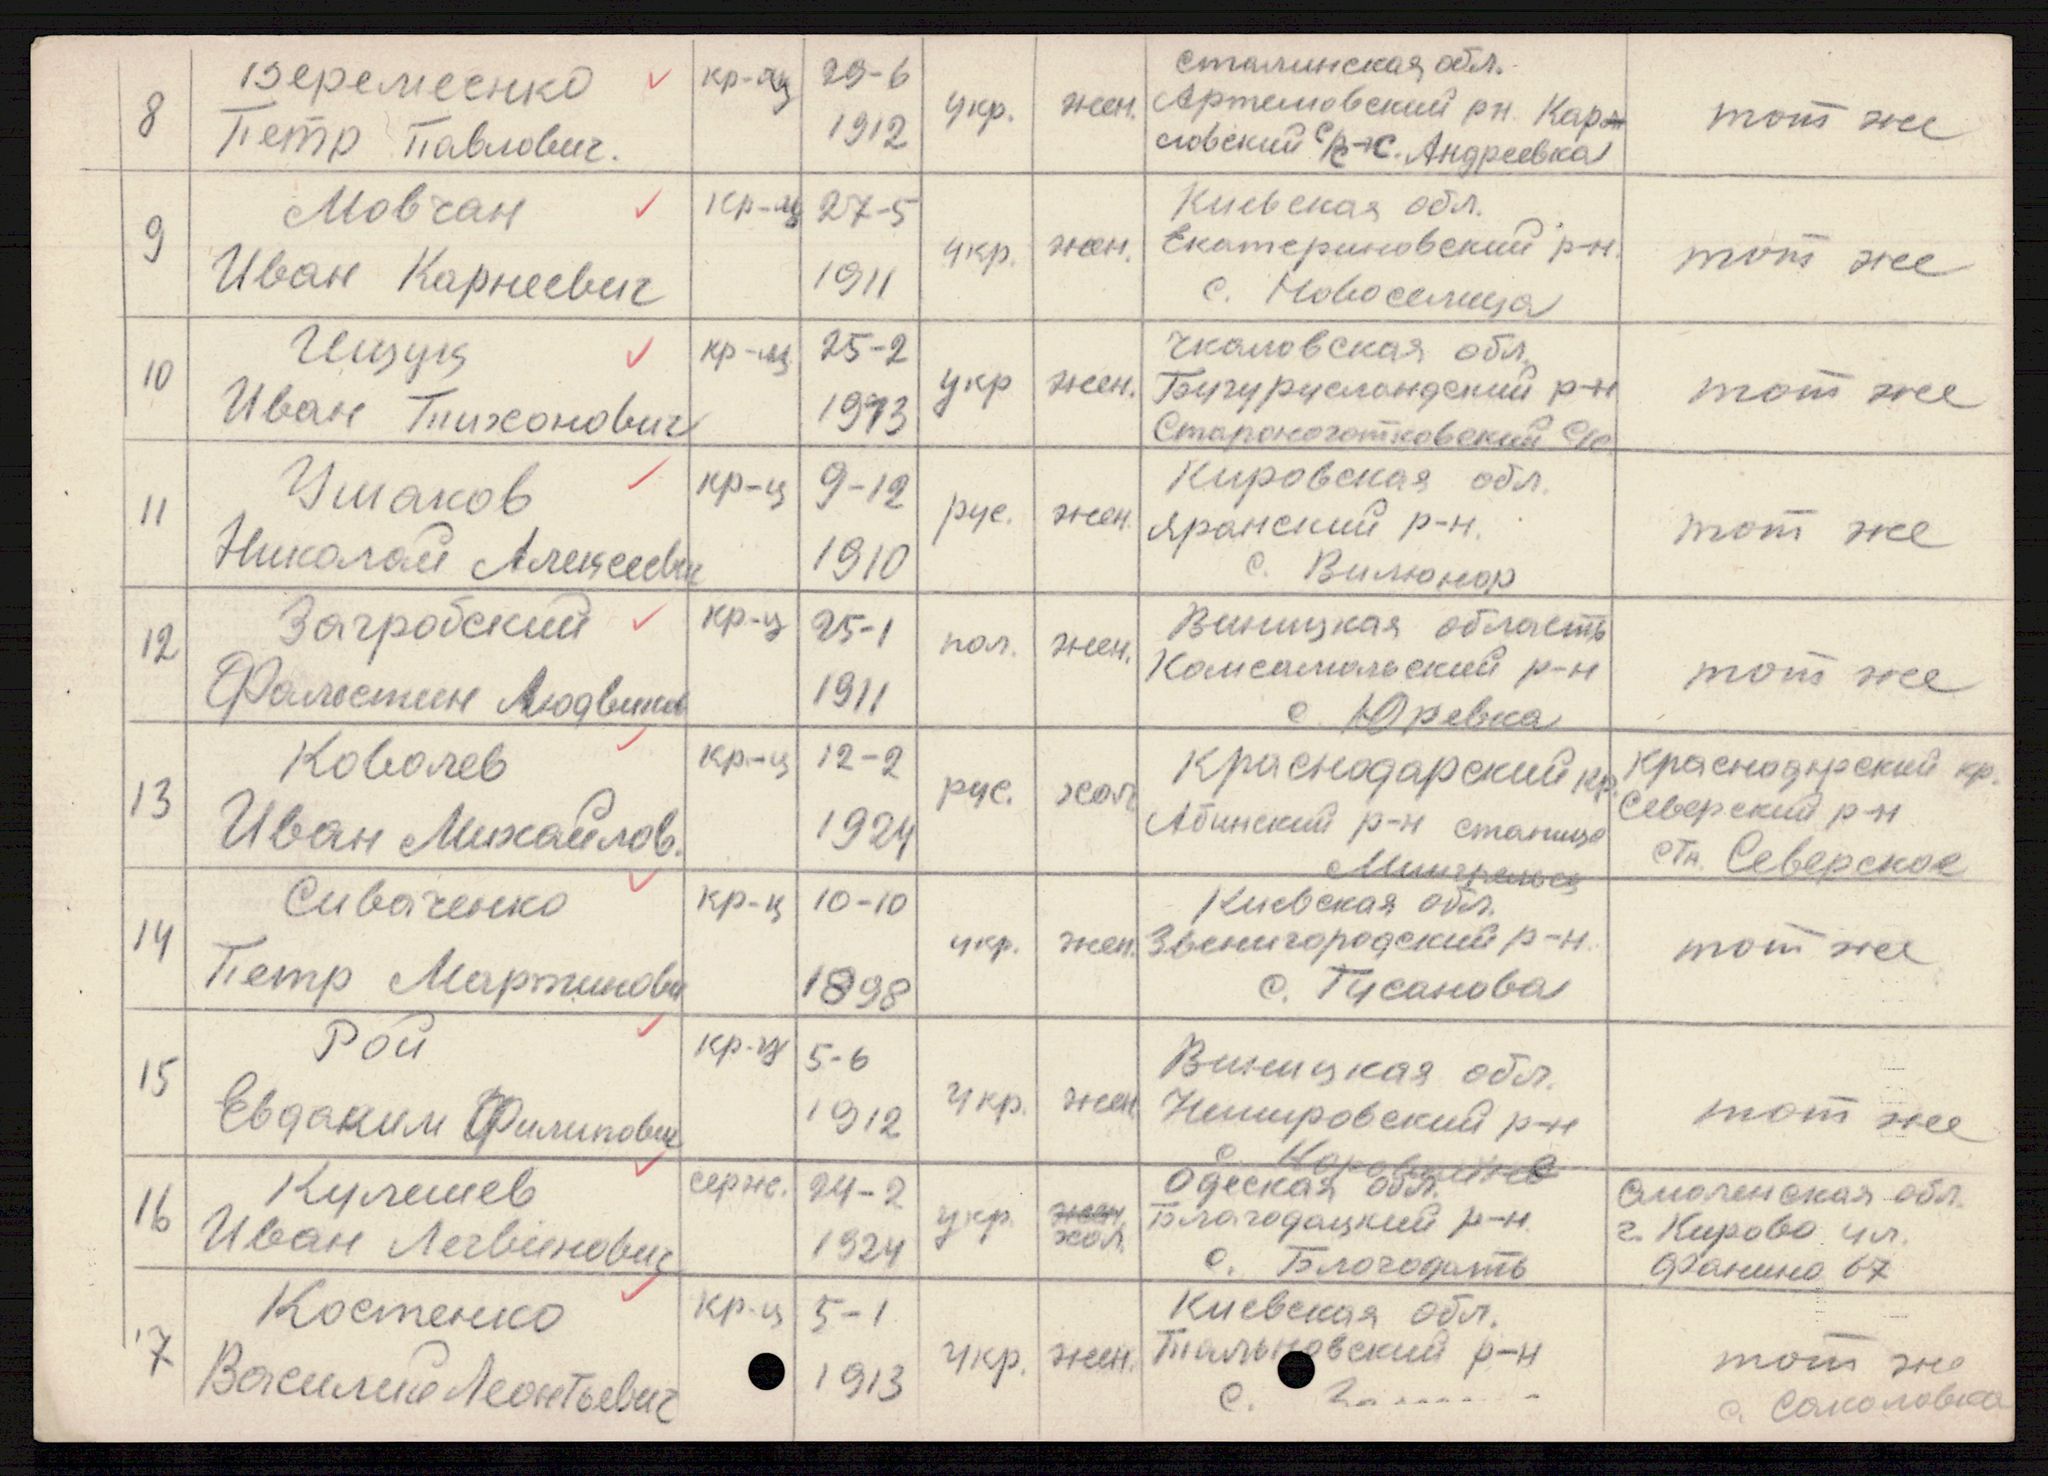 8
Веремеенко
Петр Павлович.
кр-ец
29-6
1912
укр.
жен.
Сталинская обл.
Артемовский рн. Кар
ловский с/с с. Андреевка
тот же
9
Мовчан
Иван Карнеевич
кр-ец
27-5
1911
укр.
жен.
Киевская обл.
Екатериновский р-н.
с. Новоселица
тот же
10
Ищук
Иван Тихонович
кр-ец
25-2
1913
укр
жен.
Чкаловская обл.
Бугурусландский р-н
тот же
11
Ушаков
Николай Алексеевич
кр-ц
9-12
1910
рус.
жен.
Кировская обл.
Яранский р-н.
с. Вилюнор
тот же
12
Загробский
Фальстин Людвиков
кр-ц
25-1
1911
пол.
жен.
Виницкая область
Комсамольский р-н
с. Юревка
тот же
13
Ковалев
Иван Михайлов.
кр-ц
12-2
1924
рус.
хол
Краснодарский кр.
Абинский р-н станица
Краснодарский кр.
Северский р-н
стн. Северское
14
Сиваченко
Петр Мартинович
кр-ц
10-10
1898
укр.
жен.
Киевская обл.
Звенигородский р-н.
с. Гусанова
тот же
15
Рой
Евдаким Филипович
кр-ц
5-6
1912
укр.
жен
Виницкая обл.
Немировский р-н
с.
тот же
16
Кулешев
Иван Логвинович
серж.
24-2
1924
укр.
жен
хол.
Одеская обл.
Благодацкий р-н.
с. Благодать
Смоленская обл.
г. Кирово ул.
Фанино 67
17
Костенко
Василий Леонтьевич
кр-ц
5-1
1913
укр.
жен.
Киевская обл.
Тальновский р-н
с.
тот же
с. Соколовка